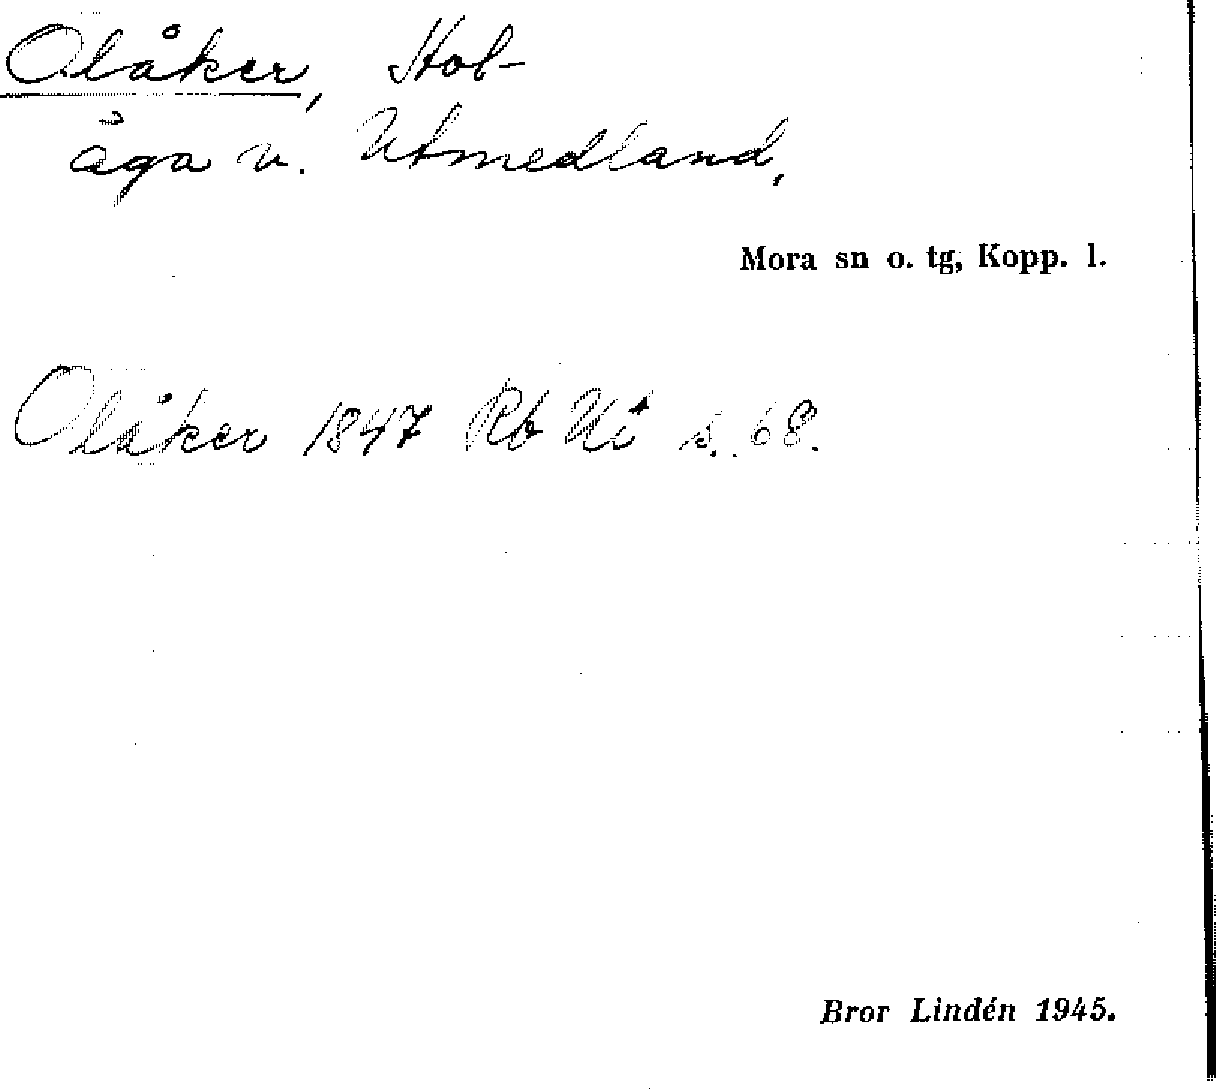 Olåker, Hob-
åga v. Utmedland,
Mora sn o. tg, Kopp. l.
Olåker 1847 Rb s. 68.
Bror Lindén 1945.